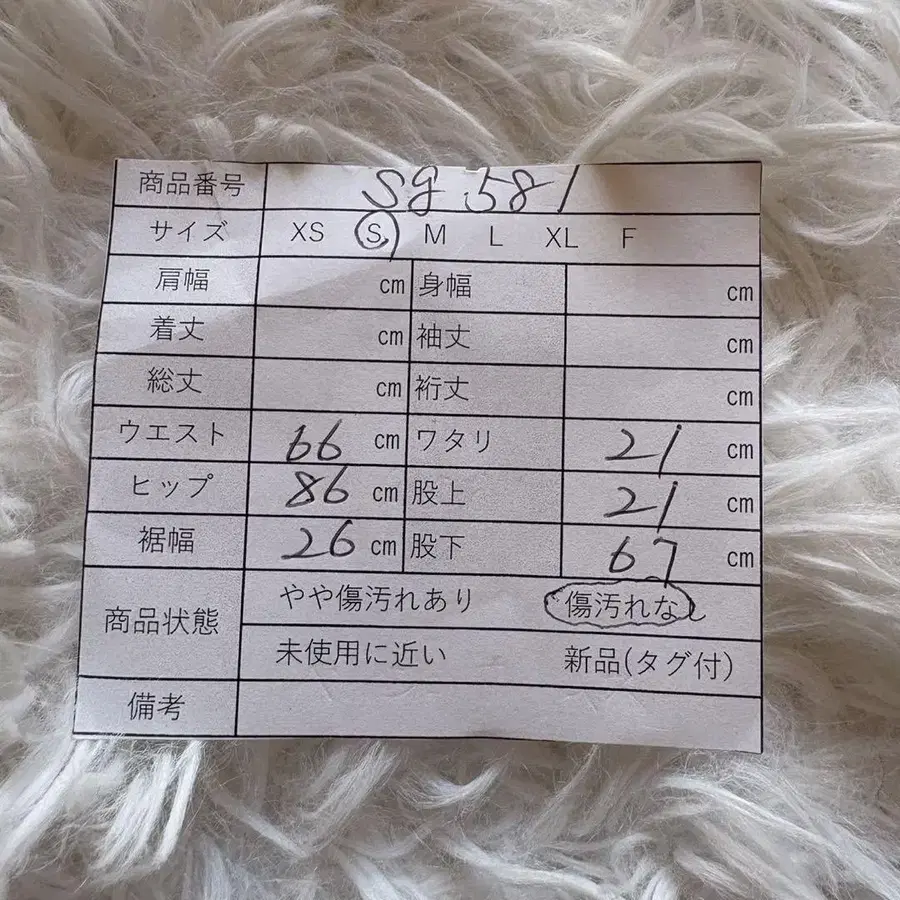 商品番号 sg.581
サイズ XS S M L XL F
肩幅 cm 身幅 cm
着丈 cm 袖丈 cm
総丈 cm 裄丈 cm
ウエスト 66 cm ワタリ 21 cm
ヒップ 86 cm 股上 21 cm
裾幅 26 cm 股下 67 cm
商品状態 やや傷汚れあり 傷汚れなし
未使用に近い 新品(タグ付)
備考